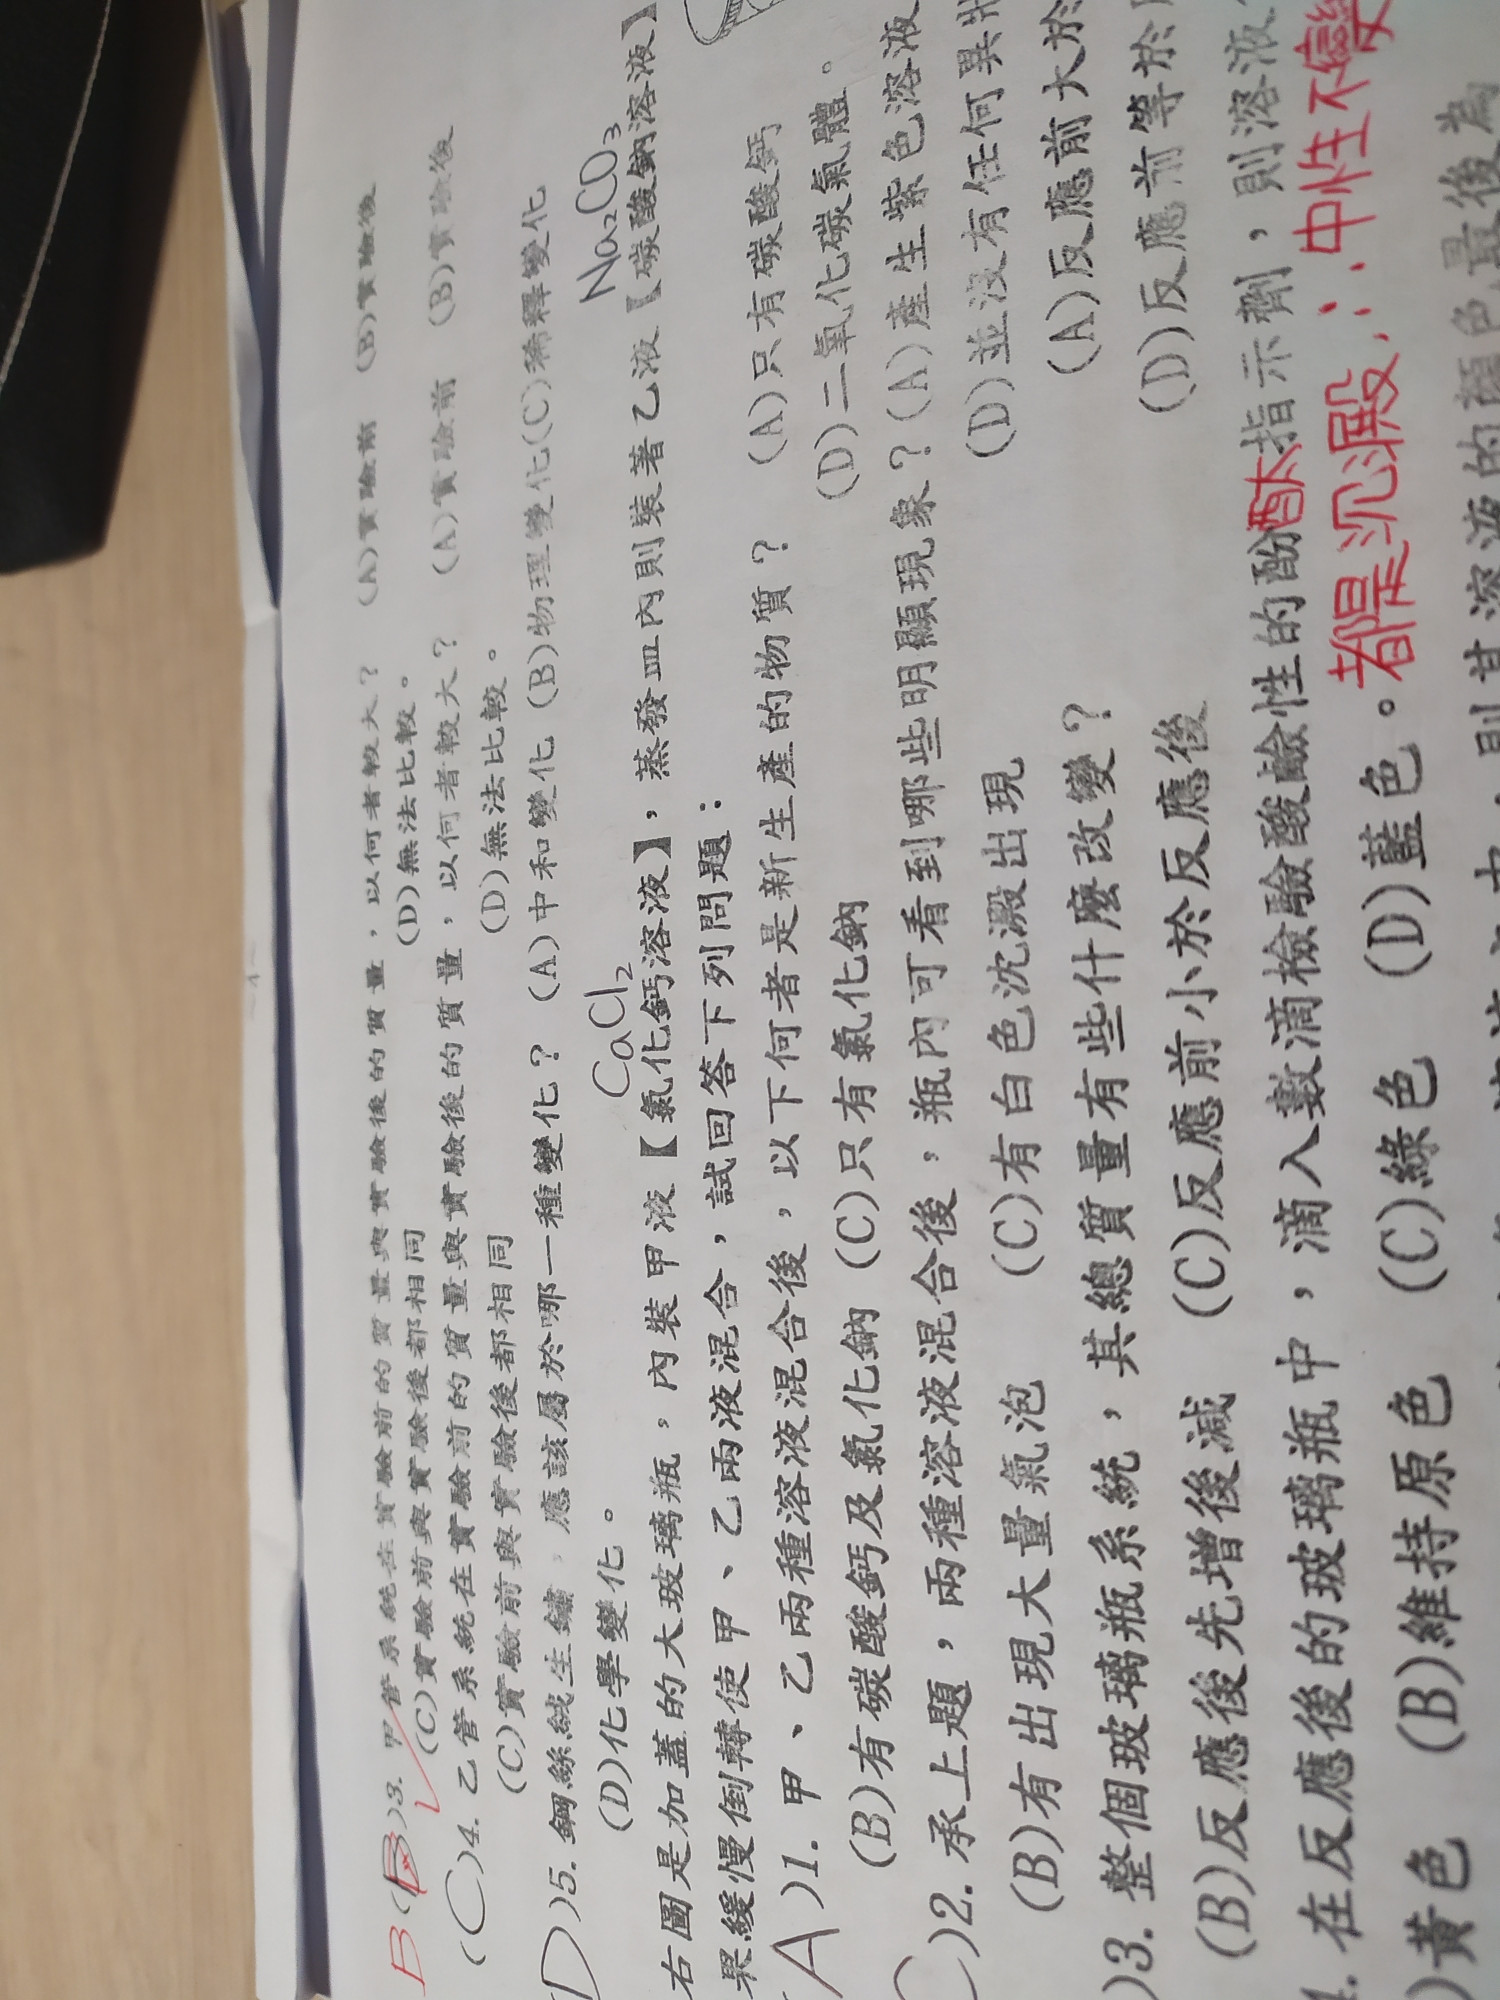 B(B)3. 甲管系統在實驗前的質量與實驗後的質量，以何者較大？ (A)實驗前 (B)實驗後
(C)實驗前與實驗後都相同 (D)無法比較。
(C)4. 乙管系統在實驗前的質量與實驗後的質量，以何者較大？ (A)實驗前 (B)實驗後
(C)實驗前與實驗後都相同 (D)無法比較。
D)5. 鋼絲絨生鏽，應該屬於哪一種變化？ (A)中和變化 (B)物理變化(C)稀釋變化
(D)化學變化。
CaCl₂ Na₂CO₃
右圖是加蓋的大玻璃瓶，內裝甲液【氯化鈣溶液】，蒸發皿內則裝著乙液【碳酸鈉溶液】
果緩慢倒轉使甲、乙兩液混合，試回答下列問題：
A)1. 甲、乙兩種溶液混合後，以下何者是新生產的物質？ (A)只有碳酸鈣
(B)有碳酸鈣及氯化鈉 (C)只有氯化鈉 (D)二氧化碳氣體。
)2. 承上題，兩種溶液混合後，瓶內可看到哪些明顯現象？(A)產生紫色溶液
(B)有出現大量氣泡 (C)有白色沈澱出現 (D)並沒有任何異狀
)3. 整個玻璃瓶系統，其總質量有些什麼改變？ (A)反應前大於
(B)反應後先增後減 (C)反應前小於反應後 (D)反應前等於
. 在反應後的玻璃瓶中，滴入數滴檢驗酸鹼性的酚酞指示劑，則溶液
)黃色 (B)維持原色 (C)綠色 (D)藍色。都是沉澱∴中性不變
則其溶液的顏色最後為